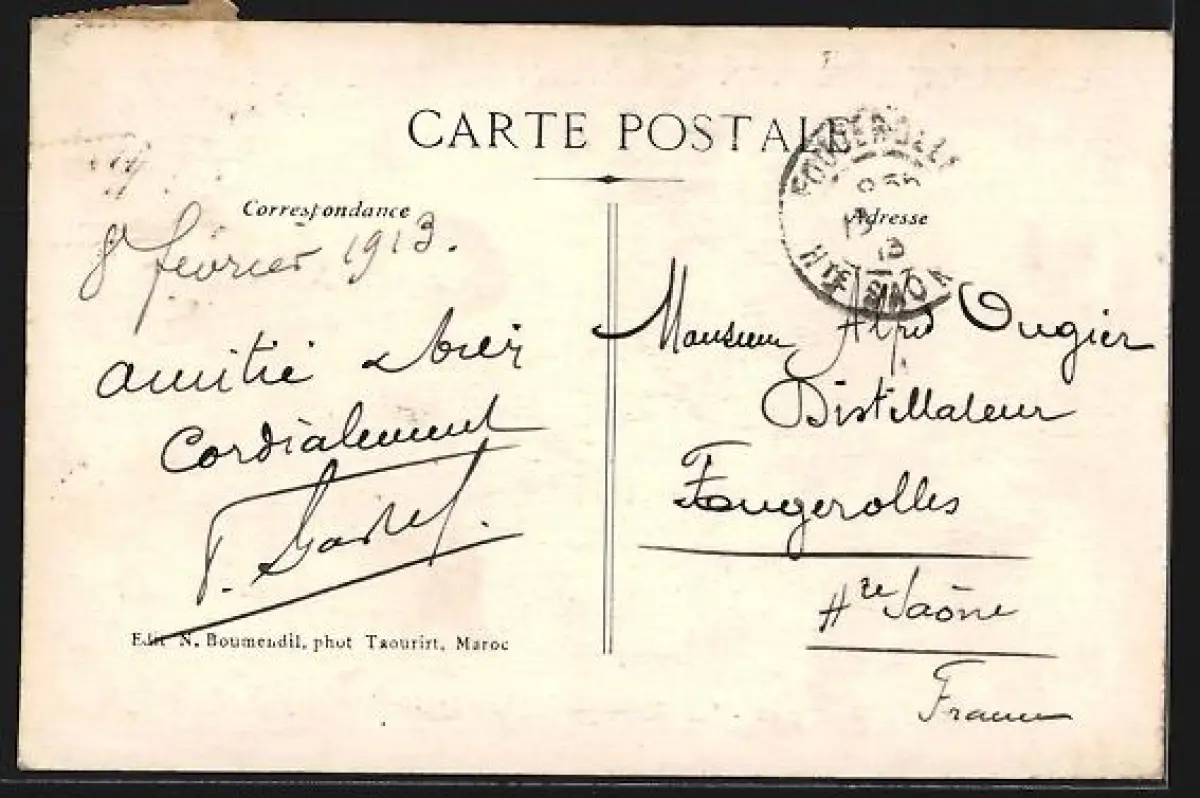 CARTE POSTALE
Correspondance
8 février 1913.
amitié
Cordialement
Edit N. Boumendil, phot Taourirt, Maroc
FOUGEROLLES
13
Hte SAONE
Adresse
Monsieur Alfred Ougier
Distillateur
Fougerolles
Hte Saône
France